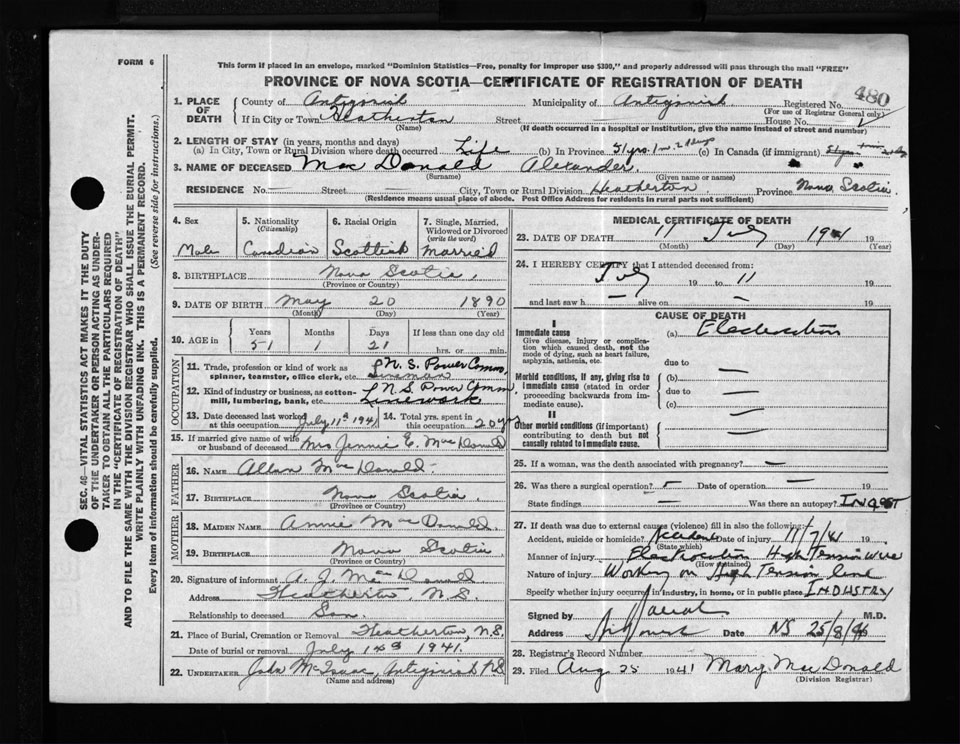 FORM 6
This form if placed in an envelope, marked "Dominion Statistics—Free, penalty for improper use $300," and properly addressed will pass through the mail "FREE"
PROVINCE OF NOVA SCOTIA—CERTIFICATE OF REGISTRATION OF DEATH
480
1. PLACE OF DEATH County of Antigonish Municipality of Antigonish Registered No.
(For use of Registrar General only)
If in City or Town Heatherton Street House No.
(Name) (If death occurred in a hospital or institution, give the name instead of street and number)
2. LENGTH OF STAY (in years, months and days)
(a) In City, Town or Rural Division where death occurred Life (b) In Province 51 yrs. 1 m. 2 days (c) In Canada (if immigrant)
3. NAME OF DECEASED Mac Donald Alexander.
(Surname) (Given name or names)
RESIDENCE No. — Street — City, Town or Rural Division Heatherton Province Nova Scotia.
(Residence means usual place of abode. Post Office Address for residents in rural parts not sufficient)
4. Sex
Male
5. Nationality
(Citizenship)
Canadian
6. Racial Origin
Scottish
7. Single, Married, Widowed or Divorced
(write the word)
Married
8. BIRTHPLACE Nova Scotia,
(Province or Country)
9. DATE OF BIRTH May 20 1890
(Month) (Day) (Year)
10. AGE in Years Months Days If less than one day old
51 1 21 hrs. or min.
OCCUPATION
11. Trade, profession or kind of work as spinner, teamster, office clerk, etc. N. S. Power Comm. Lineman
12. Kind of industry or business, as cotton-mill, lumbering, bank, etc. N S Power Comm. Linework
13. Date deceased last worked at this occupation July 11th 1941
14. Total yrs. spent in this occupation 20 yrs
15. If married give name of wife or husband of deceased Mrs Jennie E. Mac Donald
FATHER
16. NAME Allan Mac Donald
17. BIRTHPLACE Nova Scotia,
(Province or Country)
MOTHER
18. MAIDEN NAME Annie Mac Donald.
19. BIRTHPLACE Nova Scotia,
(Province or Country)
20. Signature of informant A. J. Mac Donald
Address Heatherton, N.S.
Relationship to deceased Son
21. Place of Burial, Cremation or Removal Heatherton, N.S.
Date of burial or removal July 1941.
22. UNDERTAKER John McIsaac, Antigonish N.S.
(Name and address)
MEDICAL CERTIFICATE OF DEATH
23. DATE OF DEATH July 19
(Month) (Day) (Year)
24. I HEREBY CERTIFY that I attended deceased from:
July 19 to 11 19
and last saw h — alive on — 19
CAUSE OF DEATH
I
Immediate cause
Give disease, injury or complication which caused death, not the mode of dying, such as heart failure, asphyxia, asthenia, etc.
(a) Electrocution
due to
Morbid conditions, if any, giving rise to immediate cause (stated in order proceeding backwards from immediate cause).
(b) —
due to
(c) —
II
Other morbid conditions (if important) contributing to death but not causally related to immediate cause.
25. If a woman, was the death associated with pregnancy? —
26. Was there a surgical operation? — Date of operation — 19
State findings — Was there an autopsy? INQEST
27. If death was due to external causes (violence) fill in also the following:
Accident, suicide or homicide? Accident Date of injury 11/7/41 19
(State which)
Manner of injury Electrocution High Tension Wire
(How sustained)
Nature of injury Working on High Tension line
Specify whether injury occurred in industry, in home, or in public place INDUSTRY
Signed by M.D.
Address Date NS 25/8/
28. Registrar's Record Number
29. Filed Aug 25 1941 Mary Mac Donald
(Division Registrar)
SEC. 46—VITAL STATISTICS ACT MAKES IT THE DUTY
OF THE UNDERTAKER OR PERSON ACTING AS UNDER-
TAKER TO OBTAIN ALL THE PARTICULARS REQUIRED
IN THE "CERTIFICATE OF REGISTRATION OF DEATH"
AND TO FILE THE SAME WITH THE DIVISION REGISTRAR WHO SHALL ISSUE THE BURIAL PERMIT.
WRITE PLAINLY WITH UNFADING INK. THIS IS A PERMANENT RECORD.
Every item of information should be carefully supplied. (See reverse side for instructions.)